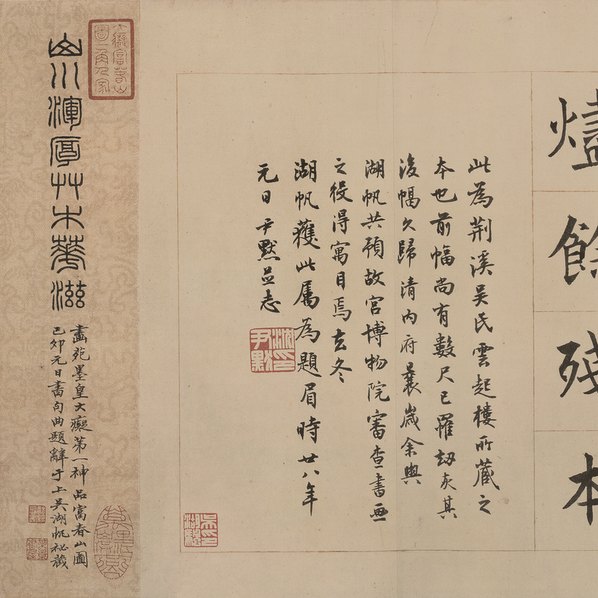 燼餘殘本
此為荆溪吳氏雲起樓所藏之
本也前幅尚有數尺已罹劫灰其
後幅久歸清內府曩歲余與
湖帆共預故宮博物院審查書画
之役得寓目焉去冬
湖帆獲此属為題眉時廿八年
元日尹默並志
大癡富春山
圖一角人家
山川渾厚艸木華滋
畫苑墨皇大癡第一神品富春山圖
己卯元日書句曲題辭于上吳湖帆祕藏